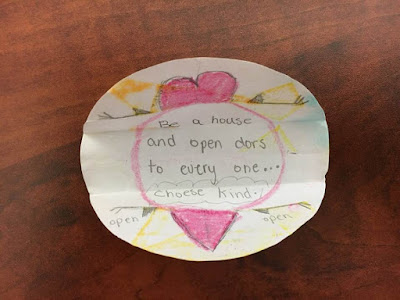 Be a house
and open dors
to every one...
choese kind.
open
open